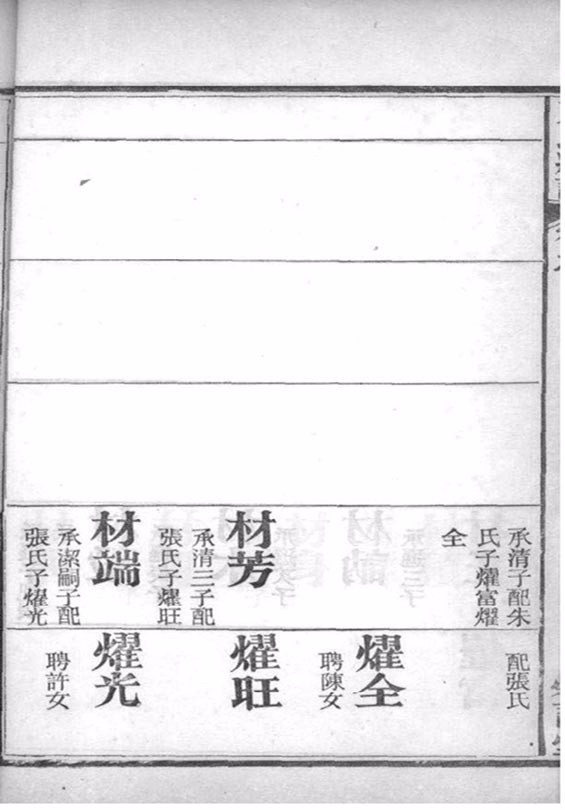 承清子配朱
氏子燿富燿
全
材芳
承清三子配
張氏子燿旺
材端
承潔嗣子配
張氏子燿光
配張氏
燿全
聘陳女
燿旺
燿光
聘許女